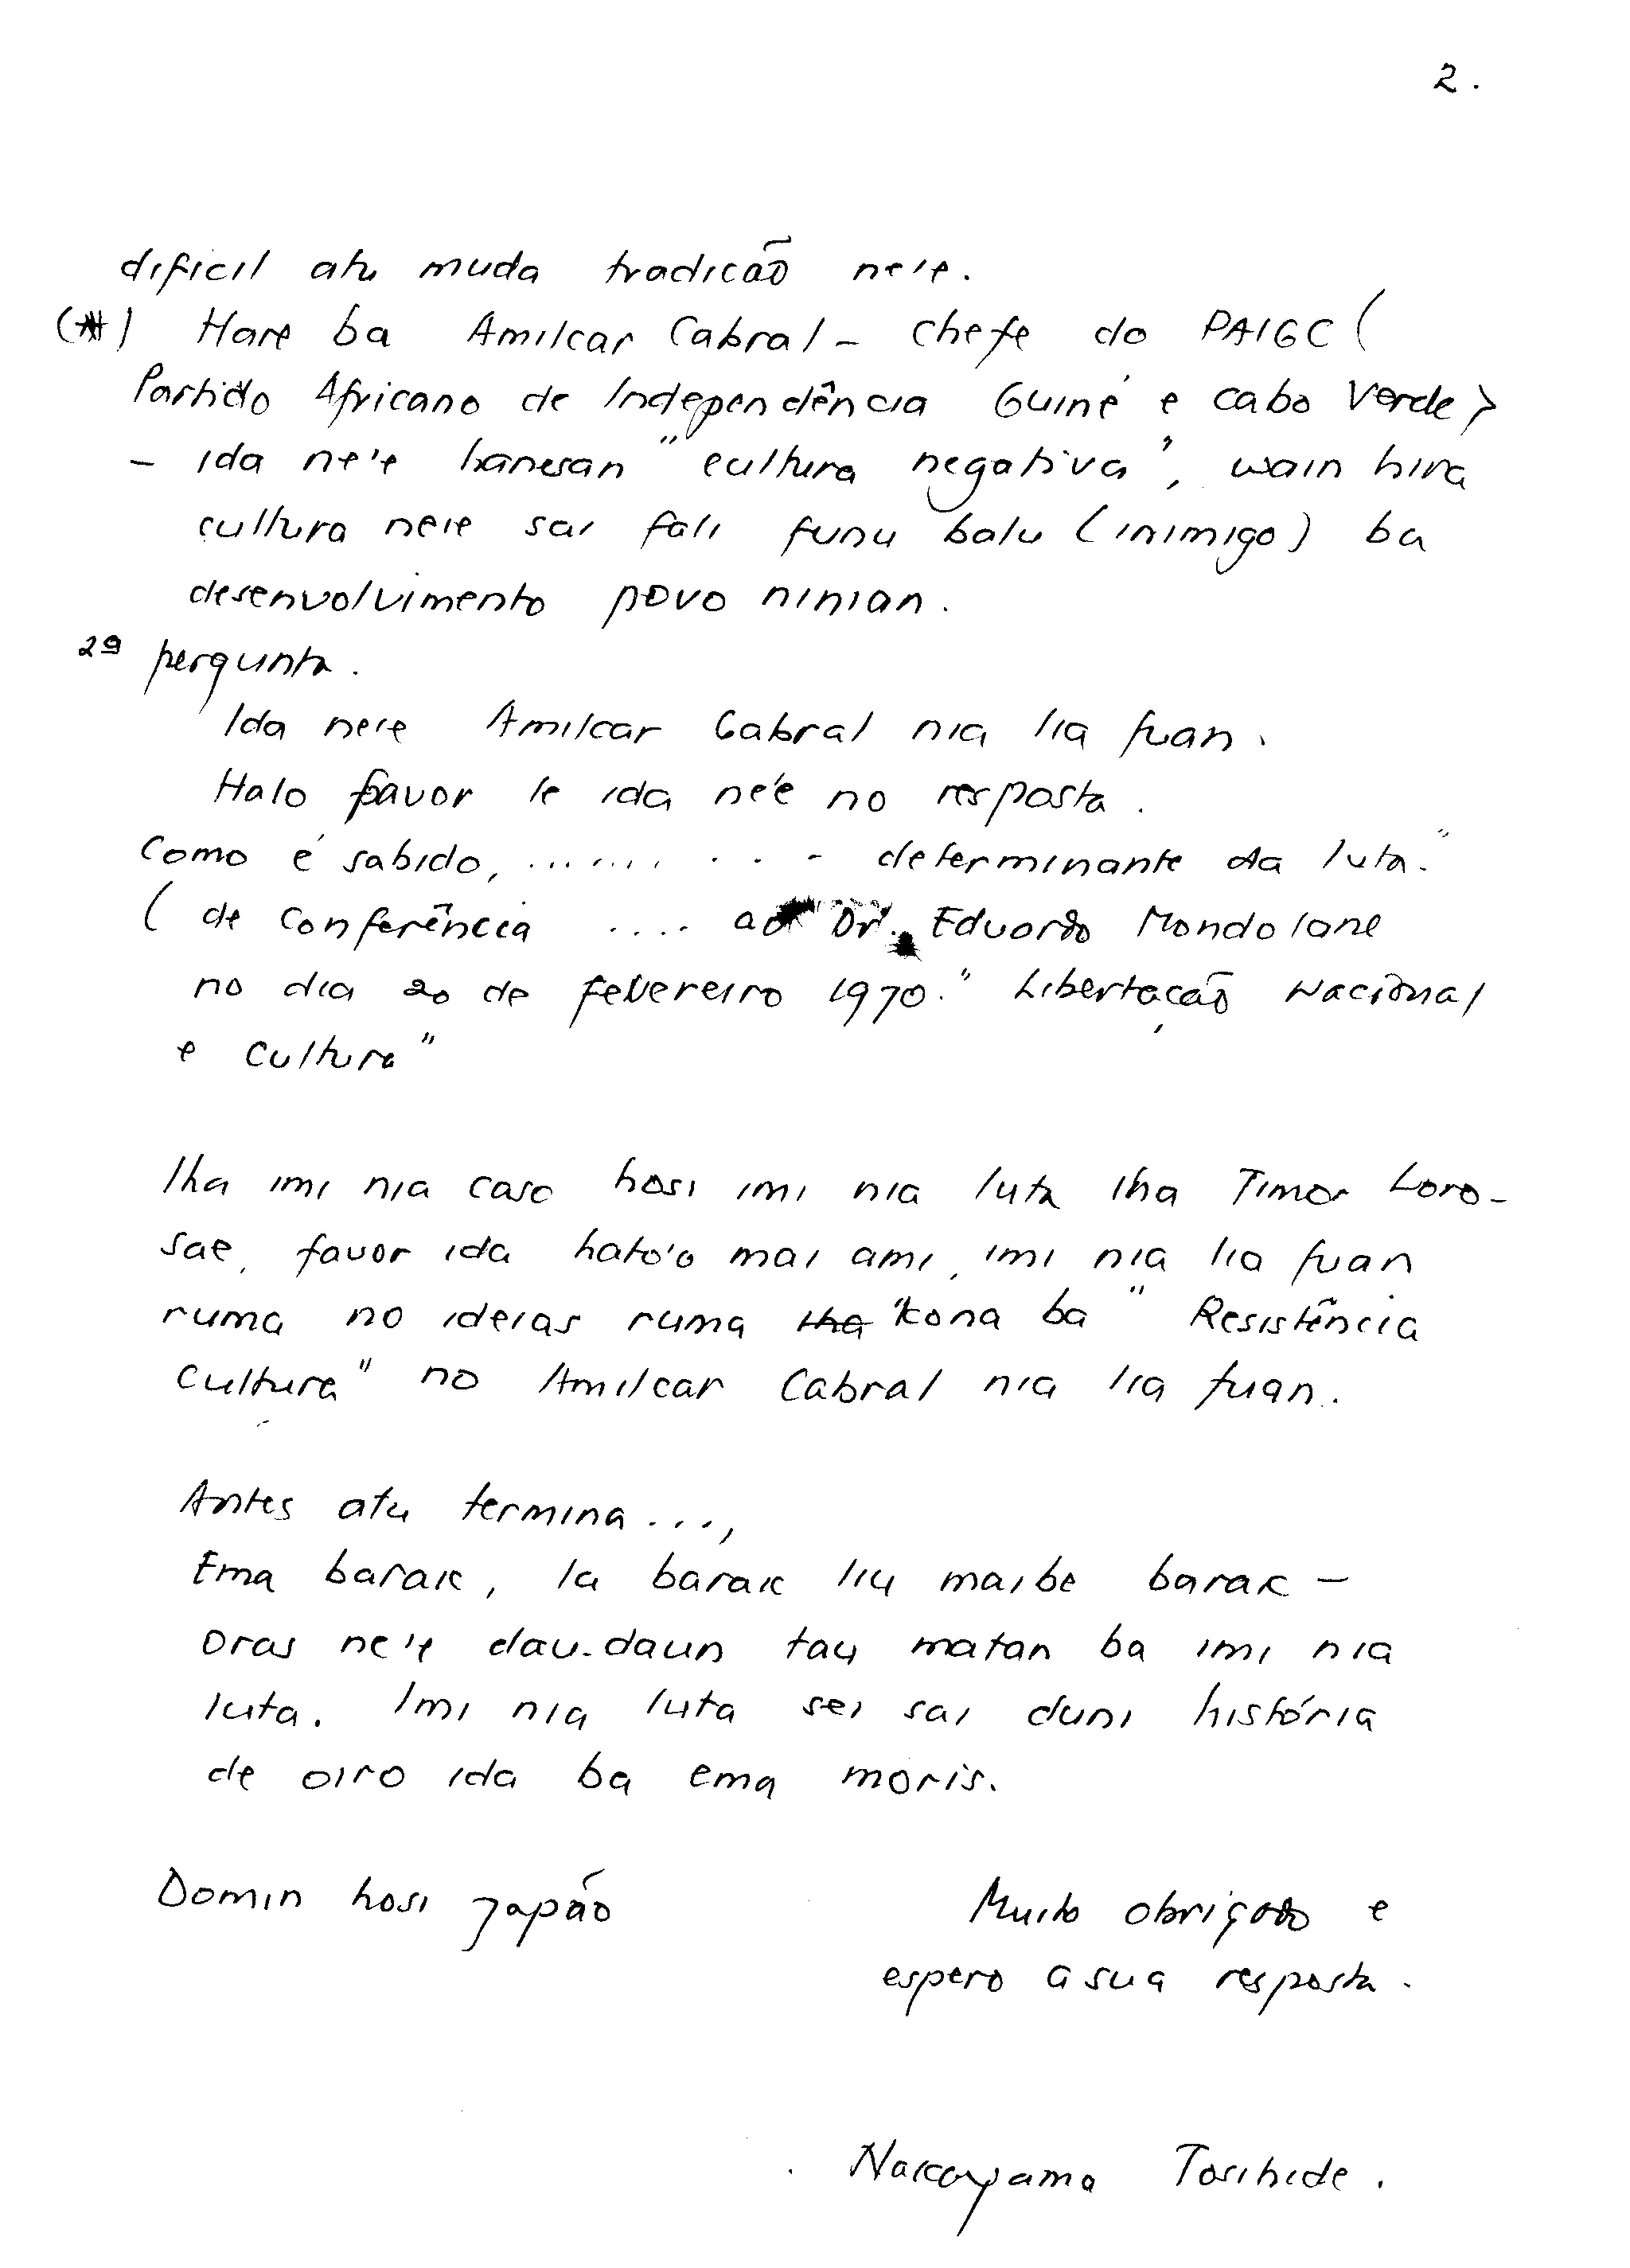 2.
dificil atu muda tradicão ne'e.
(*) Hare ba Amilcar Cabral - Chefe do PAIGC (
Partido Africano de Independência Guiné e Cabo Verde)
- ida ne'e hanesan "cultura negativa", wain hira
cultura ne'e sai fali funu balu (inimigo) ba
desenvolvimento povo ninian.
2ª pergunta.
Ida ne'e Amilcar Cabral nia lia fuan.
Halo favor le ida ne'e no resposta.
Como é sabido, .......... - determinante da luta."
( de Conferência .... ao Dr. Eduardo Mondolane
no dia 20 de fevereiro 1970. "Libertação Nacional
e Cultura"
Iha imi nia caso hosi imi nia luta iha Timor Loro-
sae, favor ida hato'o mai ami, imi nia lia fuan
ruma no ideias ruma iha kona ba "Resistência
Cultura" no Amilcar Cabral nia lia fuan.
Antes atu termina...,
Ema barak, la barak liu maibe barak -
oras ne'e dau-daun tau matan ba imi nia
luta. Imi nia luta sei sai duni história
de oiro ida ba ema moris.
Domin hosi Japão
Muito obrigado e
espero a sua resposta.
Nakayama Tosihide.